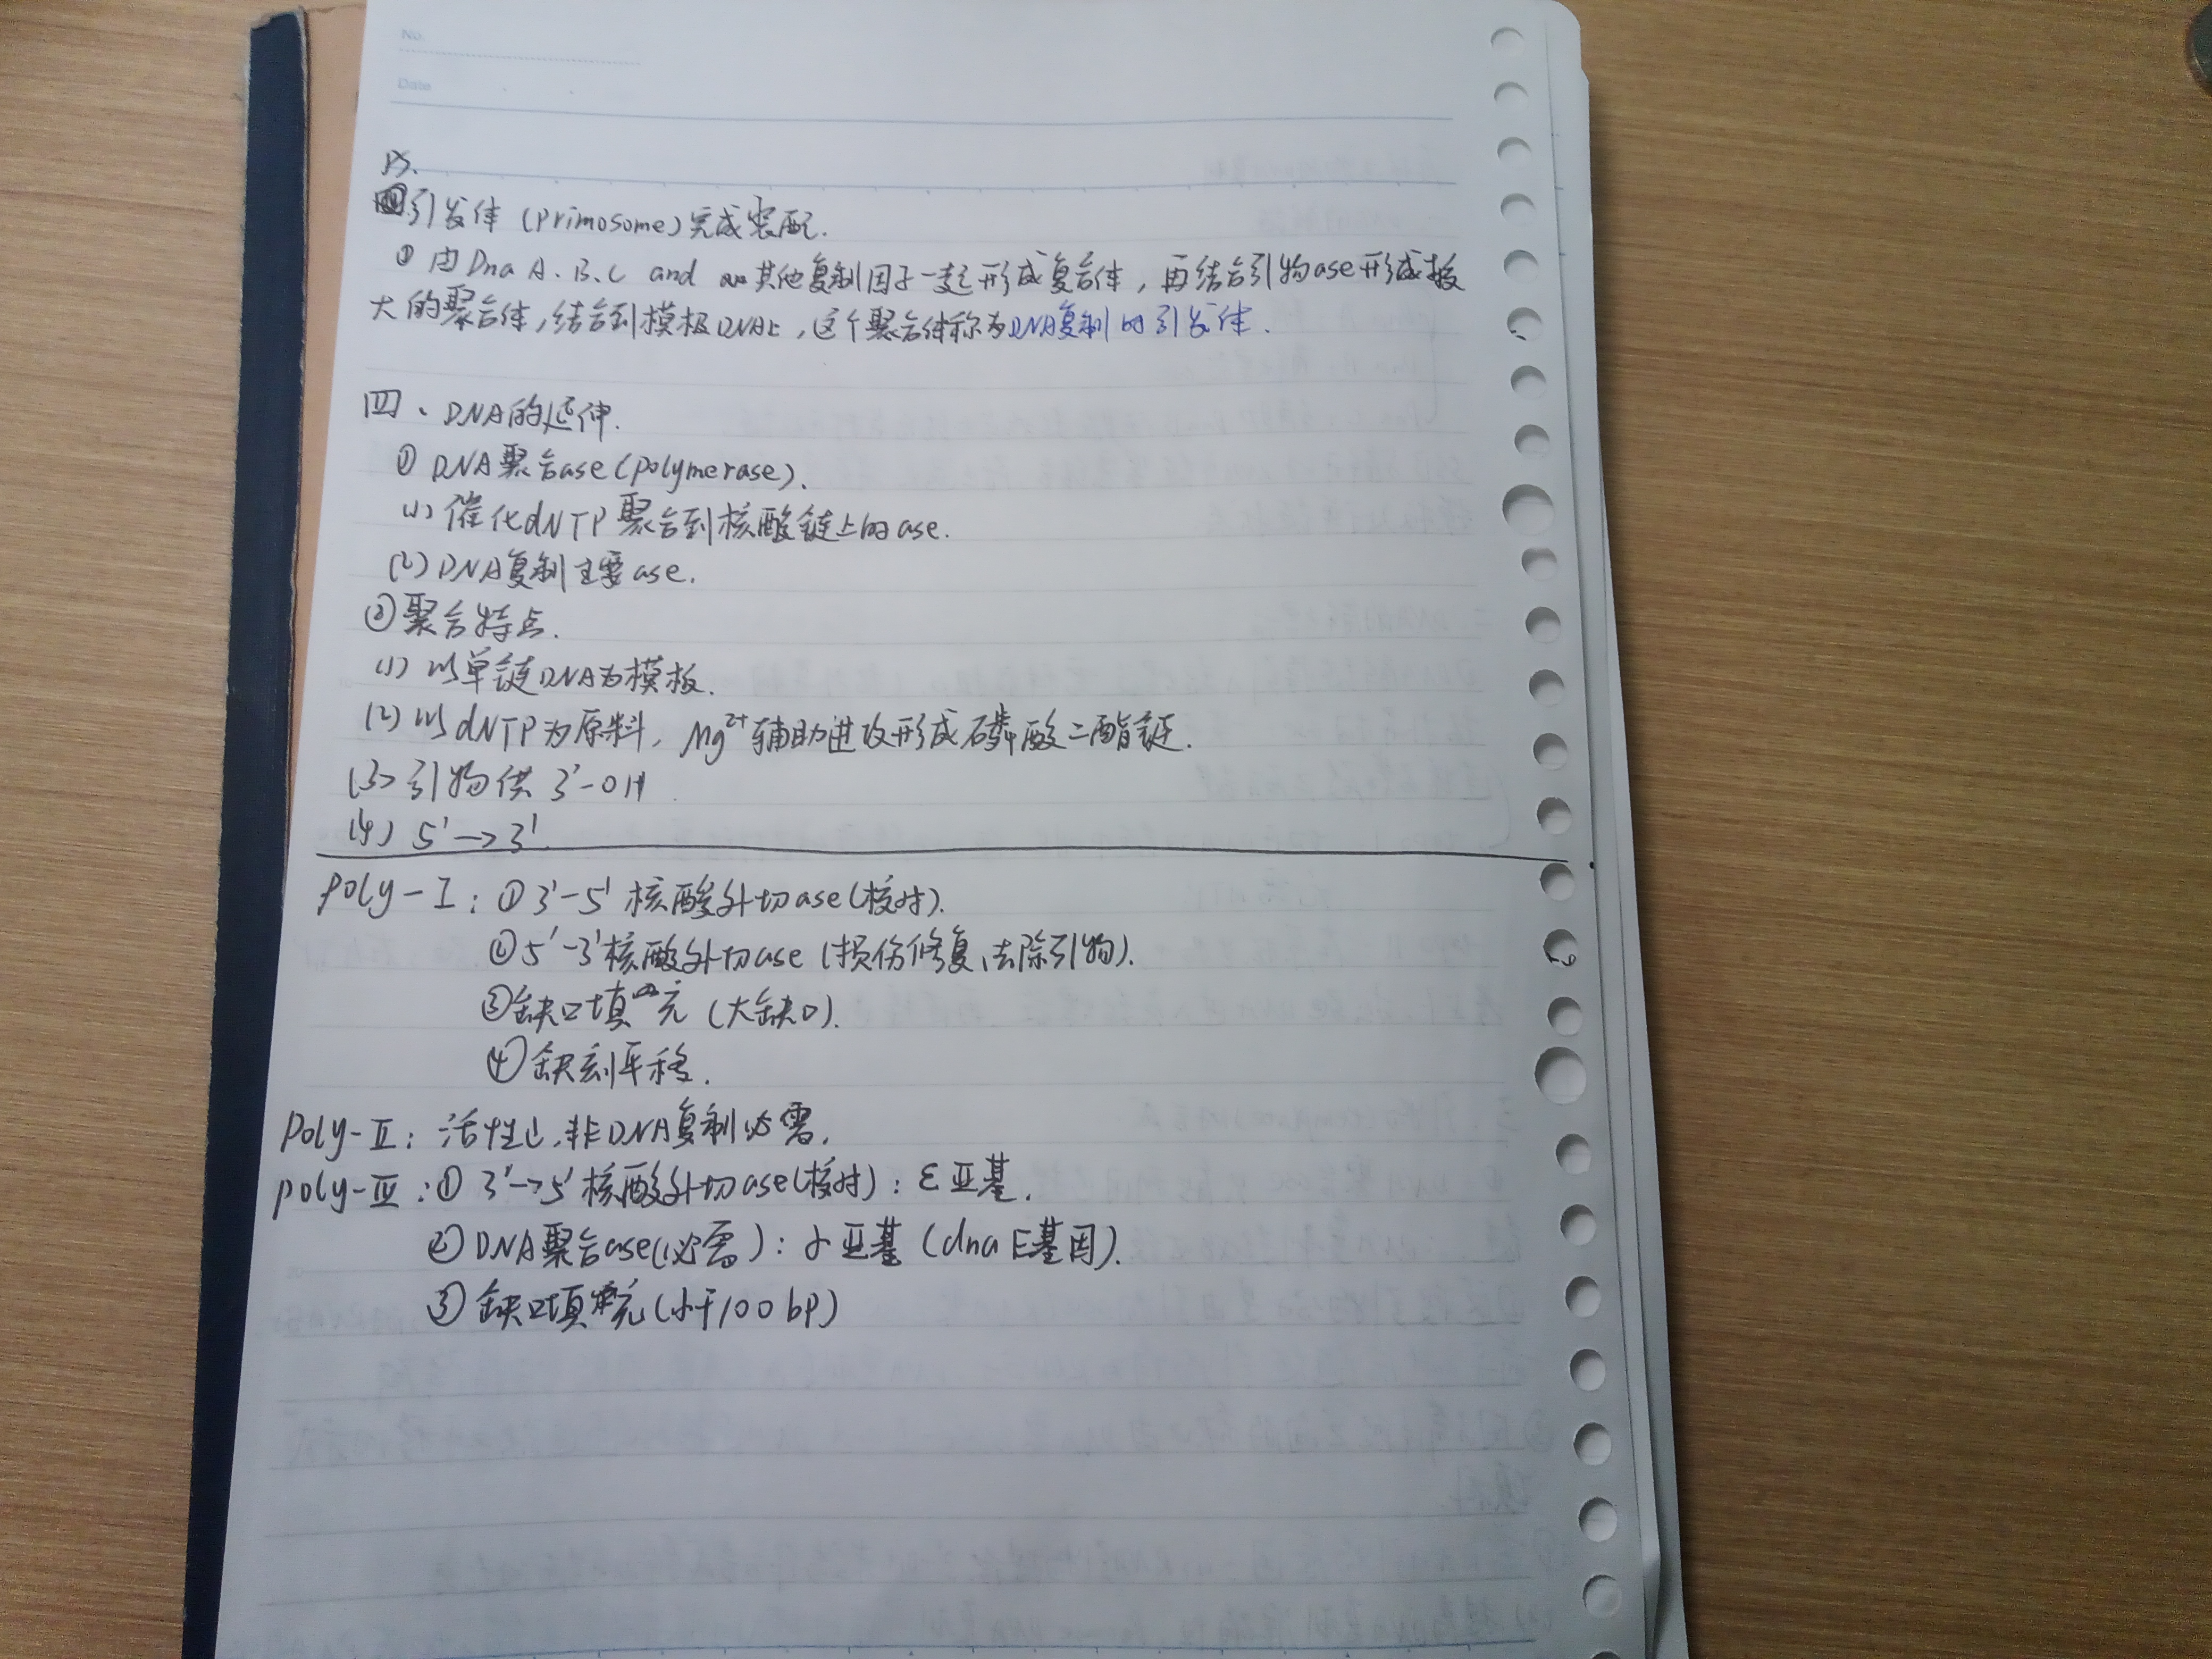 No.
Date
P5.
④引发体(primosome)完成装配.
① 由DnaA.B.C and 其他复制因子一起形成复合体，再结合引物ase形成较
大的聚合体,结合到模板DNA上，这个聚合体称为DNA复制的引发体.
四、DNA的延伸.
① DNA聚合ase(polymerase).
(1) 催化dNTP聚合到核酸链上的ase.
(2) DNA复制主要ase.
②聚合特点.
(1) 以单链DNA为模板.
(2) 以dNTP为原料，Mg²⁺辅助进攻形成磷酸二酯键.
(3) 引物供 3'-OH.
(4) 5'→3'
poly-Ⅰ: ① 3'-5' 核酸外切ase(校对).
② 5'-3'核酸外切ase (损伤修复,去除引物).
③缺口填充 (大缺口).
④缺刻平移.
Poly-Ⅱ: 活性↓,非DNA复制必需.
poly-Ⅲ:① 3'→5' 核酸外切ase(校对): ε亚基.
② DNA聚合ase(必需): α亚基 (dnaE基因).
③ 缺口填充(小于100bp)